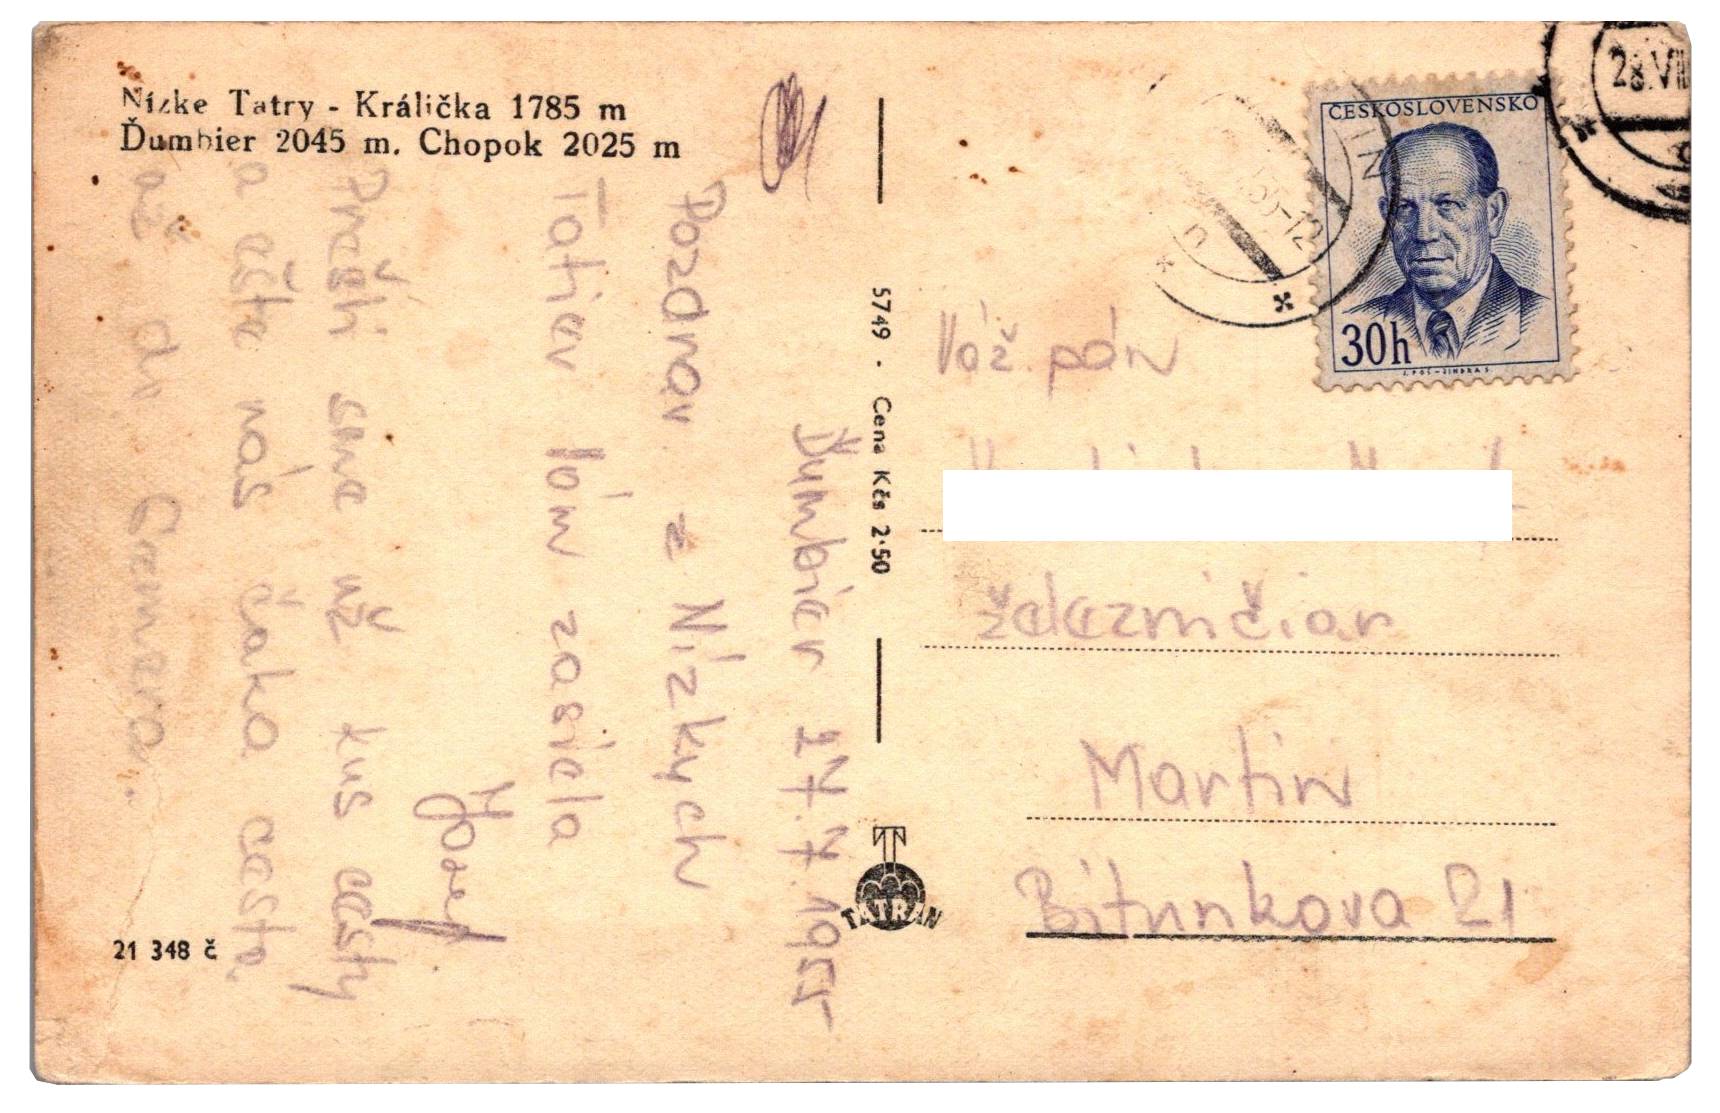 Nízke Tatry - Králička 1785 m
Ďumbier 2045 m. Chopok 2025 m
Ďumbier 27.7.1955
Pozdrav z Nízkych
Tatier Vám zasiela
Jozef
Prešli sme už kus cesty
a ešte nás čaka cesta
až do Gemera.
21 348 č
5749 · Cena Kčs 2·50
TATRAN
ČESKOSLOVENSKO
30h
28.VII
55-12
Váž. pán
železničiar
Martin
Bitunkova 21